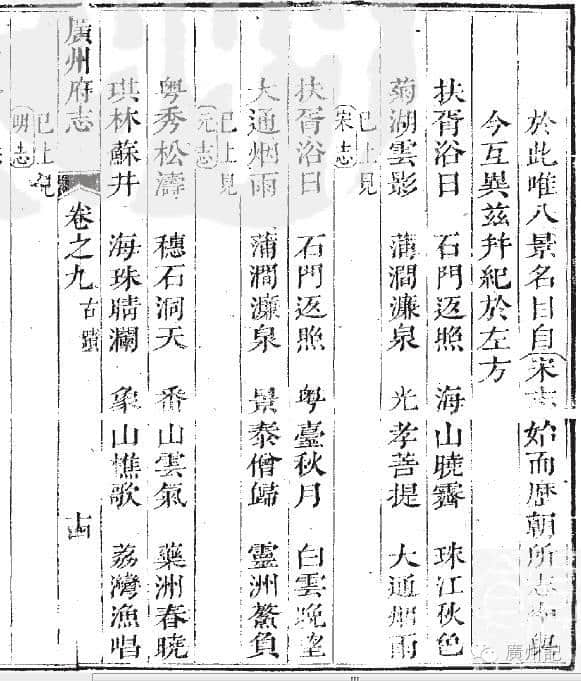 於此唯八景名目自宋志始而歷朝所志
今互異茲并紀於左方
扶胥浴日 石門返照 海山曉霽 珠江秋色
菊湖雲影 蒲澗濂泉 光孝菩提 大通烟雨
已上見
宋志
扶胥浴日 石門返照 粵臺秋月 白雲晚望
大通烟雨 蒲澗濂泉 景泰僧歸 靈洲鰲負
已上見
元志
粵秀松濤 穗石洞天 番山雲氣 藥洲春曉
琪林蘇井 海珠晴瀾 象山樵歌 荔灣漁唱
廣州府志 卷之九 古蹟 十四
已上見
明志
廣州記